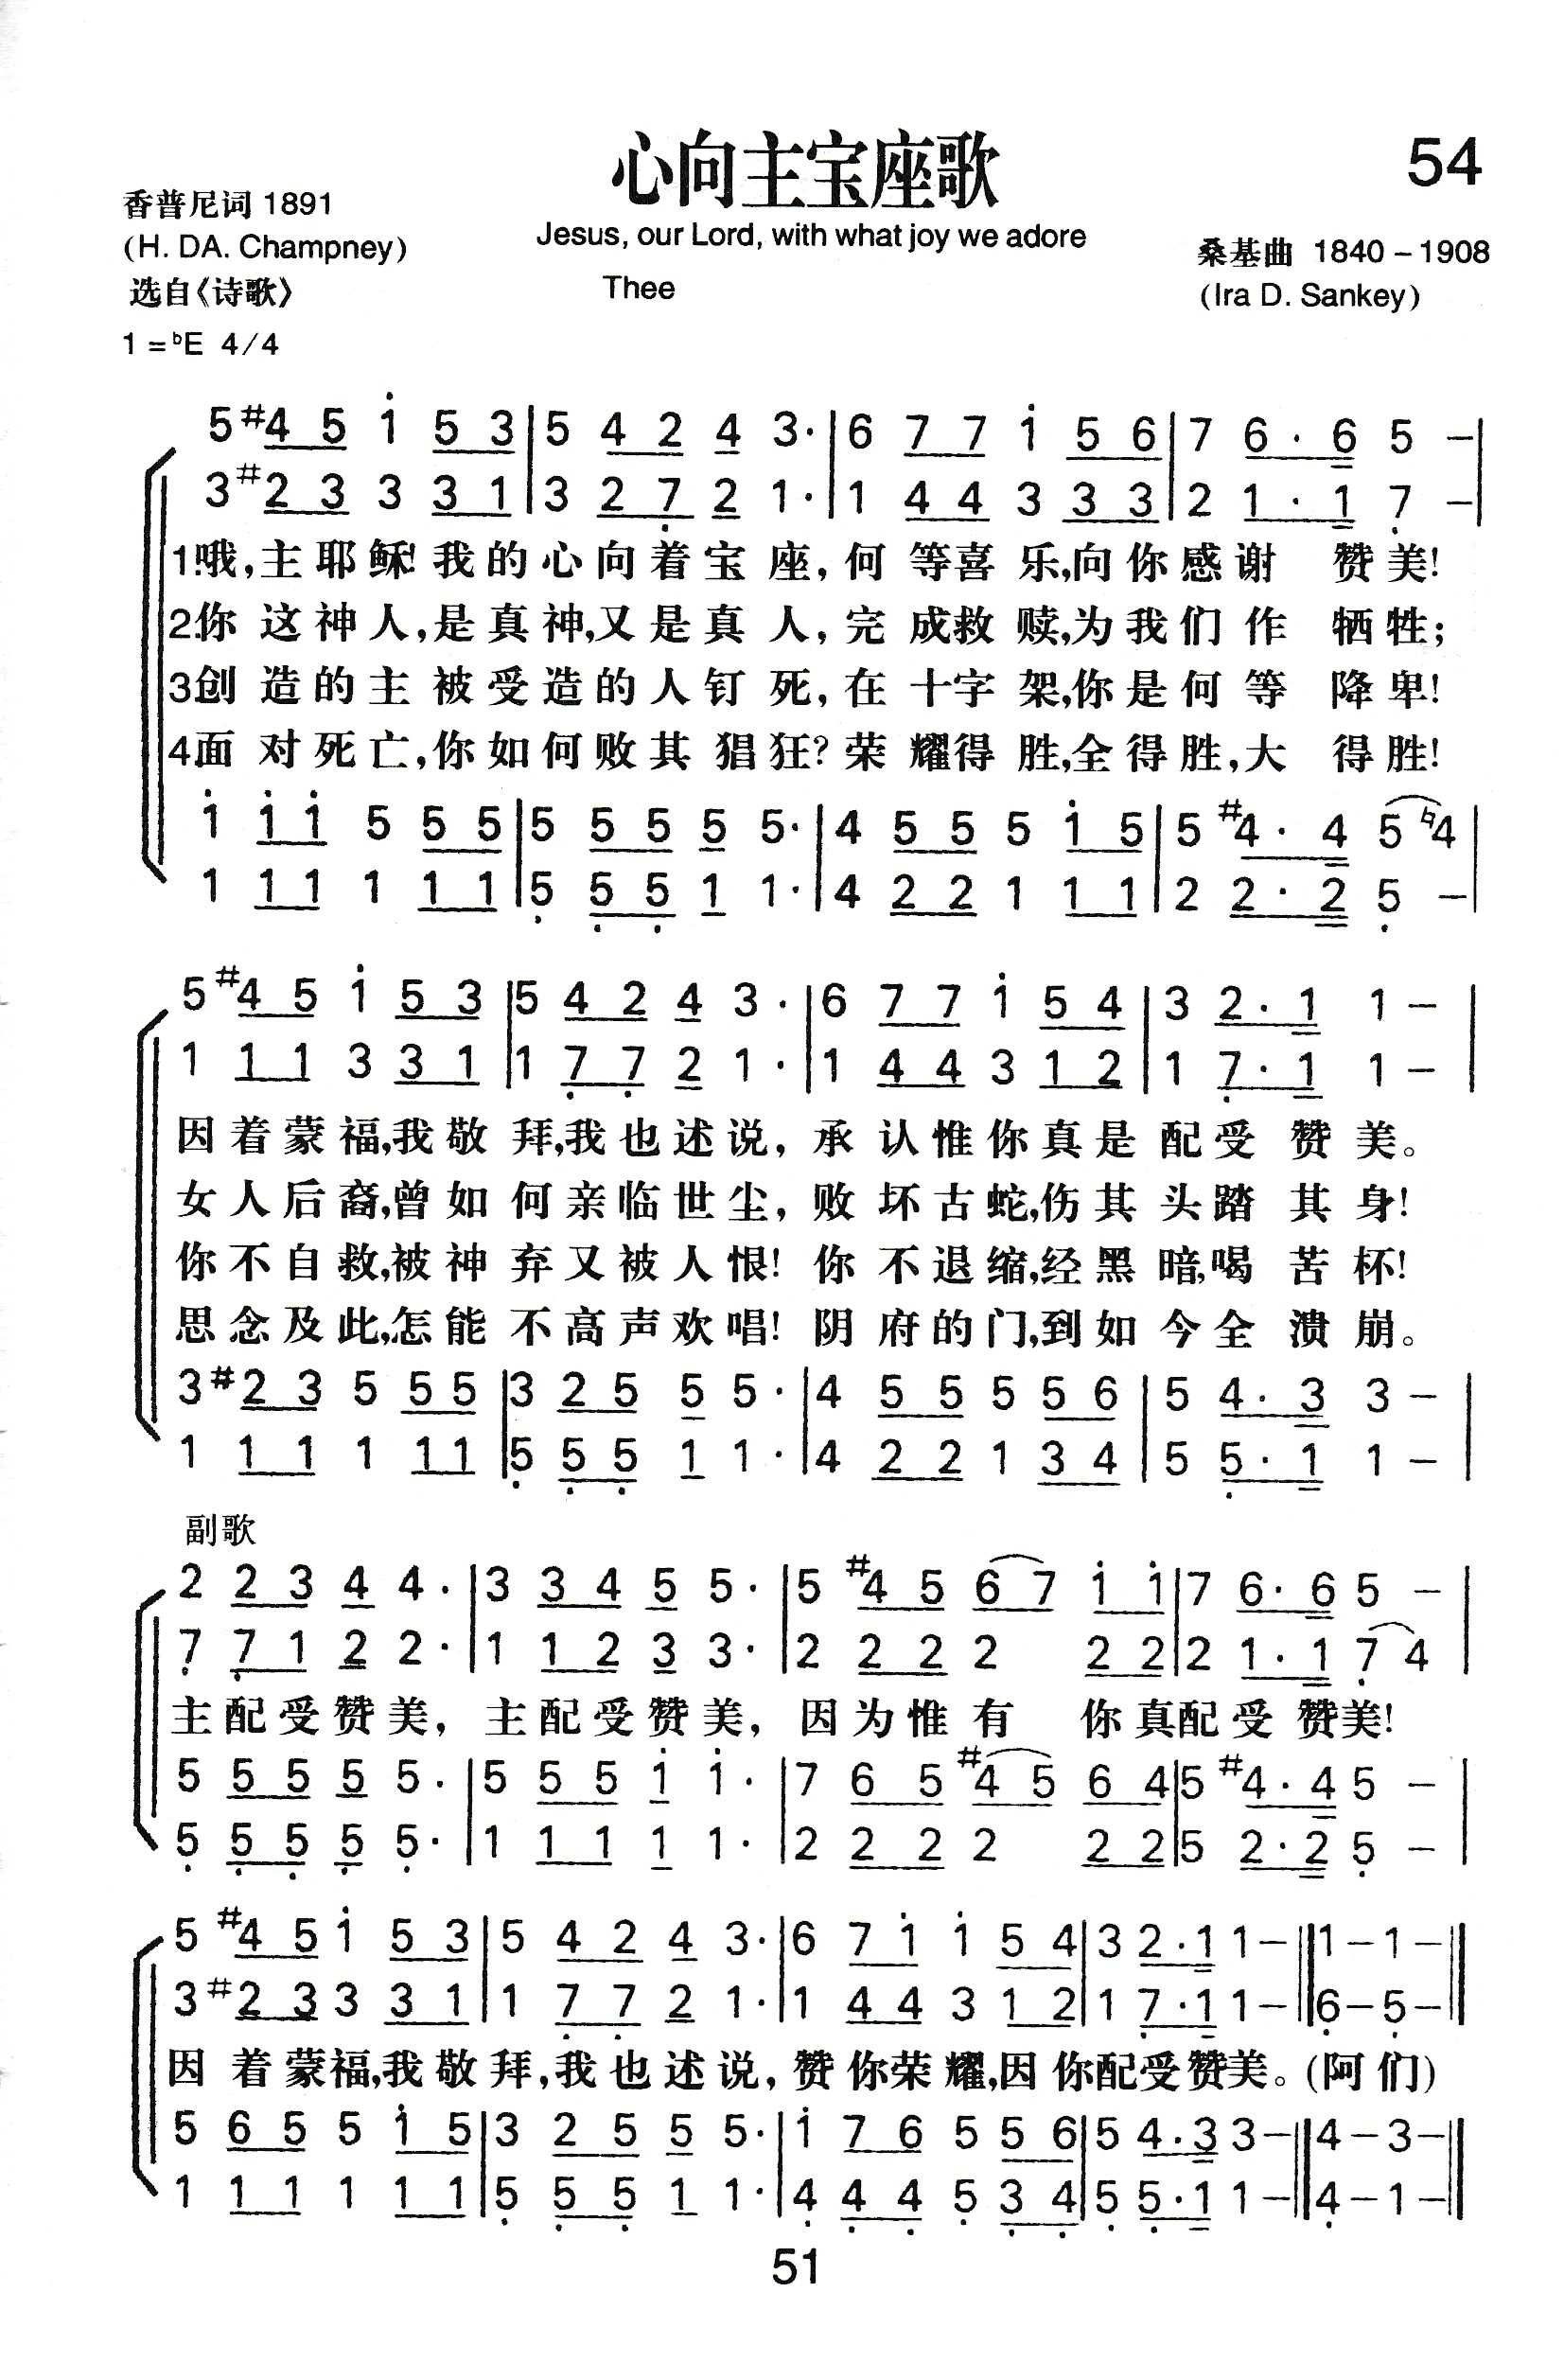 心向主宝座歌
54
香普尼词 1891
(H. DA. Champney)
选自《诗歌》
Jesus, our Lord, with what joy we adore
Thee
桑基曲 1840－1908
(Ira D. Sankey)
1=ᵇE 4/4
5 #4 5 i̇ 5 3 | 5 4 2 4 3· | 6 7 7 i̇ 5 6 | 7 6· 6 5 – |
3 #2 3 3 3 1 | 3 2 7̣ 2 1· | 1 4 4 3 3 3 | 2 1· 1 7̣ – |
1.哦,主耶稣!我的心向着宝座,何等喜乐,向你感谢赞美!
2.你这神人,是真神,又是真人,完成救赎,为我们作牺牲;
3.创造的主被受造的人钉死,在十字架,你是何等降卑!
4.面对死亡,你如何败其猖狂?荣耀得胜,全得胜,大得胜!
i̇ i̇ i̇ 5 5 5 | 5 5 5 5 5· | 4 5 5 5 i̇ 5 | 5 #4· 4 5 ♮4 |
1 1 1 1 1 1 | 5̣ 5̣ 5̣ 1 1· | 4 2 2 1 1 1 | 2 2· 2 5̣ – |
5 #4 5 i̇ 5 3 | 5 4 2 4 3· | 6 7 7 i̇ 5 4 | 3 2· 1 1 – |
1 1 1 3 3 1 | 1 7̣ 7̣ 2 1· | 1 4 4 3 1 2 | 1 7̣· 1 1 – |
因着蒙福,我敬拜,我也述说,承认惟你真是配受赞美。
女人后裔,曾如何亲临世尘,败坏古蛇,伤其头踏其身!
你不自救,被神弃又被人恨!你不退缩,经黑暗,喝苦杯!
思念及此,怎能不高声欢唱!阴府的门,到如今全溃崩。
3 #2 3 5 5 5 | 3 2 5 5 5· | 4 5 5 5 5 6 | 5 4· 3 3 – |
1 1 1 1 1 1 | 5̣ 5̣ 5̣ 1 1· | 4 2 2 1 3 4 | 5 5̣· 1 1 – |
副歌
2 2 3 4 4· | 3 3 4 5 5· | 5 #4 5 6 7 i̇ i̇ | 7 6· 6 5 – |
7̣ 7̣ 1 2 2· | 1 1 2 3 3· | 2 2 2 2 2 2 | 2 1· 1 7̣ 4 |
主配受赞美,主配受赞美,因为惟有你真配受赞美!
5 5 5 5 5· | 5 5 5 i̇ i̇· | 7 6 5 #4 5 6 4 | 5 #4· 4 5 – |
5̣ 5̣ 5̣ 5̣ 5̣· | 1 1 1 1 1· | 2 2 2 2 2 2 | 5 2· 2 5̣ – |
5 #4 5 i̇ 5 3 | 5 4 2 4 3· | 6 7 i̇ i̇ 5 4 | 3 2· 1 1 – ‖ 1 – 1 – ‖
3 #2 3 3 3 1 | 1 7̣ 7̣ 2 1· | 1 4 4 3 1 2 | 1 7̣· 1 1 – ‖ 6̣ – 5̣ – ‖
因着蒙福,我敬拜,我也述说,赞你荣耀,因你配受赞美。(阿们)
5 6 5 5 i̇ 5 | 3 2 5 5 5· | i̇ 7 6 5 5 6 | 5 4· 3 3 – ‖ 4 – 3 – ‖
1 1 1 1 1 1 | 5̣ 5̣ 5̣ 1 1· | 4̣ 4̣ 4̣ 5̣ 3̣ 4̣ | 5̣ 5̣· 1 1 – ‖ 4̣ – 1 – ‖
51